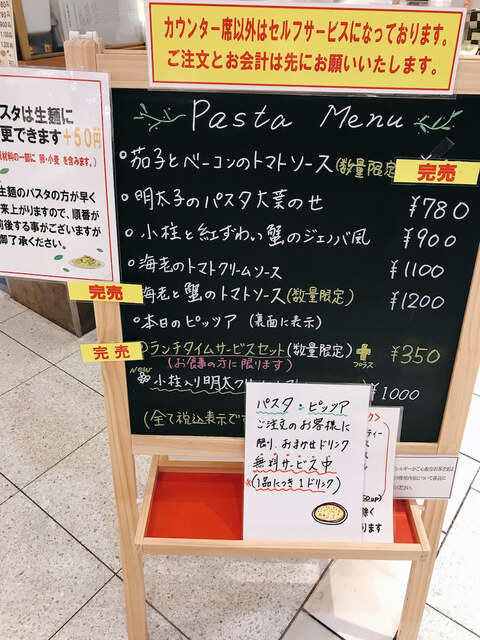 カウンター席以外はセルフサービスになっております。
ご注文とお会計は先にお願いいたします。
パスタは生麺に
変更できます+50円
生麺のパスタの方が早く
出来上がりますので、順番
が前後する事がございますが
ご了承ください。
Pasta Menu
茄子とベーコンのトマトソース(数量限定
完売
明太子のパスタ大葉のせ ¥780
小柱と紅ずわい蟹のジェノバ風 ¥900
海老のトマトクリームソース ¥1100
完売
海老と蟹のトマトソース(数量限定) ¥1200
本日のピッツァ(裏面に表示)
完売
ランチタイムサービスセット(数量限定)+プラス ¥350
(お食事の方に限ります)
New 小柱入り明太クリーム ¥1000
(全て税込表示で
パスタ・ピッツァ
ご注文のお客様に
限り、おまかせドリンク
無料サービス中
(1品につき1ドリンク)